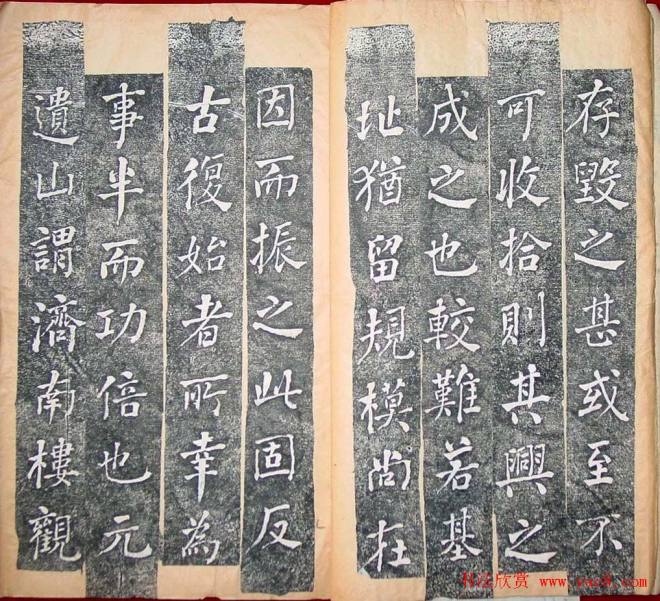 存毀之甚或至不
可收拾則其興之
成之也較難若基
址猶留規模尚在
因而振之此固反
古復始者所幸為
事半而功倍也元
遺山謂濟南樓觀
书法欣赏